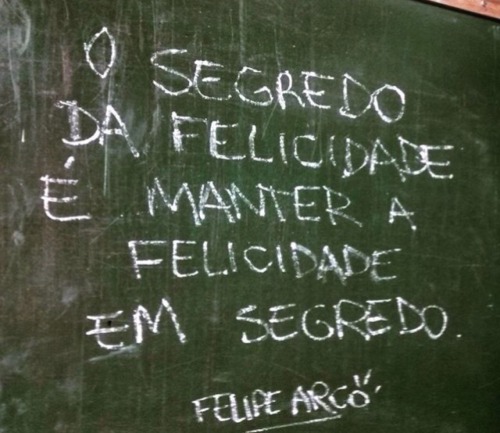 O SEGREDO
DA FELICIDADE
É MANTER A
FELICIDADE
EM SEGREDO.
FELIPE ARCO